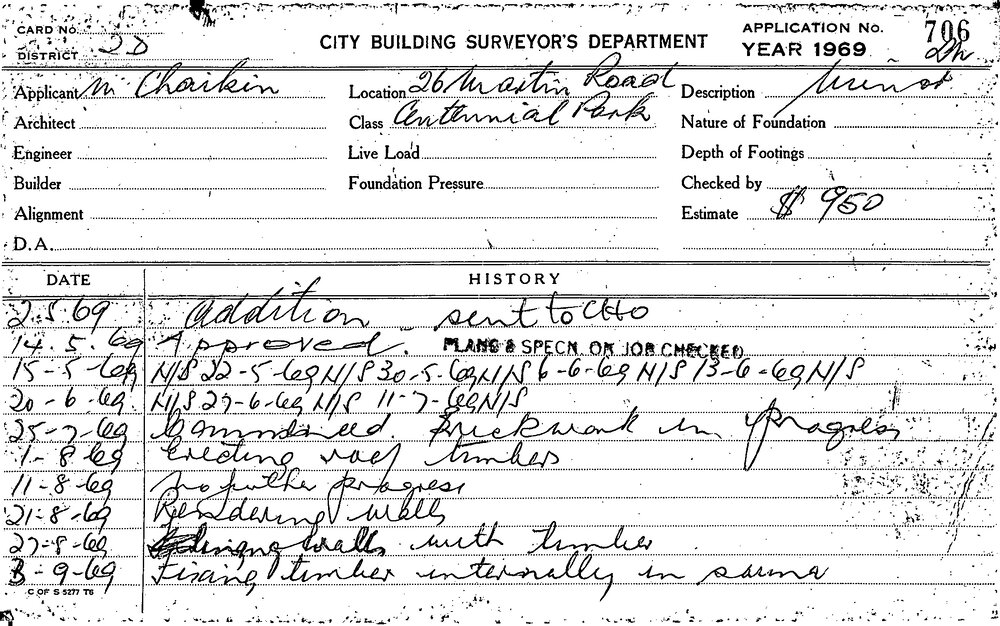 CARD No.
DISTRICT 2D
CITY BUILDING SURVEYOR'S DEPARTMENT
APPLICATION No. 706
YEAR 1969
Applicant M Chaikin
Location 26 Martin Road
Description
Architect
Class Centennial Park
Nature of Foundation
Engineer
Live Load
Depth of Footings
Builder
Foundation Pressure
Checked by
Alignment
Estimate $ 950
D.A.
DATE HISTORY
2.5.69 Addition - sent to CHO
14.5.69 Approved. PLANS & SPECN. ON JOB CHECKED
15-5-69 N/S 22-5-69 N/S 30-5-69 N/S 6-6-69 N/S 13-6-69 N/S
20-6-69 N/S 27-6-69 N/S 11-7-69 N/S
25-7-69 Commenced. Brickwork in progress
1-8-69 Erecting roof timbers
11-8-69 No further progress
21-8-69 Rendering walls
27-8-69 walls with timber
3-9-69 Fixing timber internally in sauna
C OF S 5277 T6